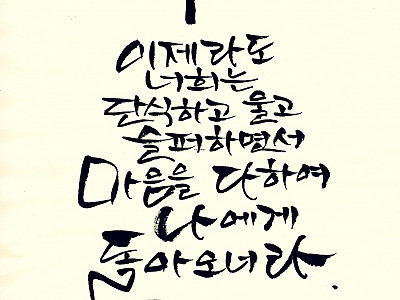 이제라도
너희는
단식하고 울고
슬퍼하면서
마음을 다하여
나에게
돌아오너라.